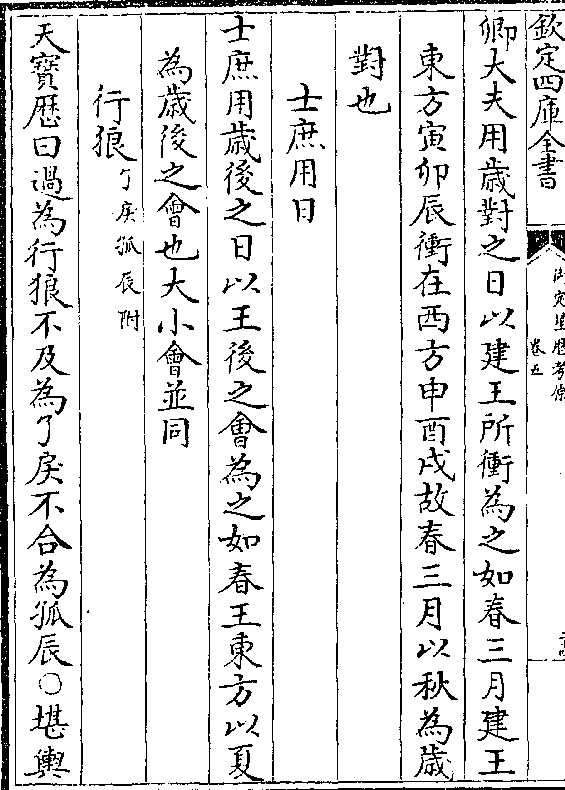 欽定四庫全書
御定星歷考原
卷五
卿大夫用歲對之日以建王所衝為之如春三月建王
東方寅卯辰衝在西方申酉戌故春三月以秋為歲
對也
士庶用日
士庶用歲後之日以王後之會為之如春王東方以夏
為歲後之會也大小會並同
行狼了戾孤辰附
天寶歷曰過為行狼不及為了戾不合為孤辰○堪輿